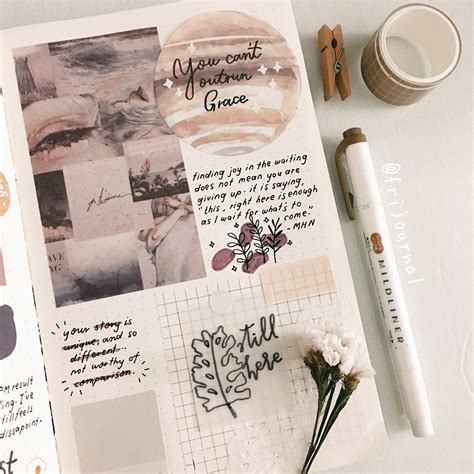 You can't
outrun
Grace
finding joy in the waiting
does not mean you are
giving up. it is saying,
"this, right here is enough
as I wait for what's to
come."
-MHN
your story is
unique. and so
different.
not worthy of
comparison.
still
here
MILDLINER
@frijournal
result
I've
feels